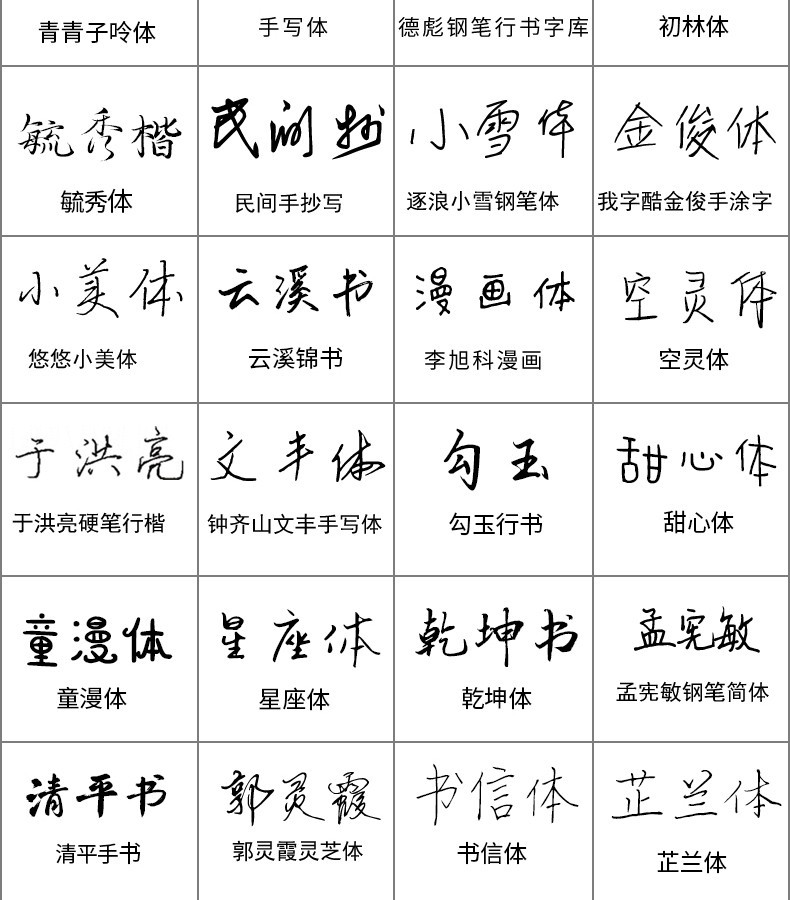 青青子吟体
手写体
德彪钢笔行书字库
初林体
毓秀楷
民间抄
小雪体
金俊体
毓秀体
民间手抄写
逐浪小雪钢笔体
我字酷金俊手涂字
小美体
云溪书
漫画体
空灵体
悠悠小美体
云溪锦书
李旭科漫画
空灵体
于洪亮
文丰体
勾玉
甜心体
于洪亮硬笔行楷
钟齐山文丰手写体
勾玉行书
甜心体
童漫体
星座体
乾坤书
孟宪敏
童漫体
星座体
乾坤体
孟宪敏钢笔简体
清平书
郭灵霞
书信体
芷兰体
清平手书
郭灵霞灵芝体
书信体
芷兰体